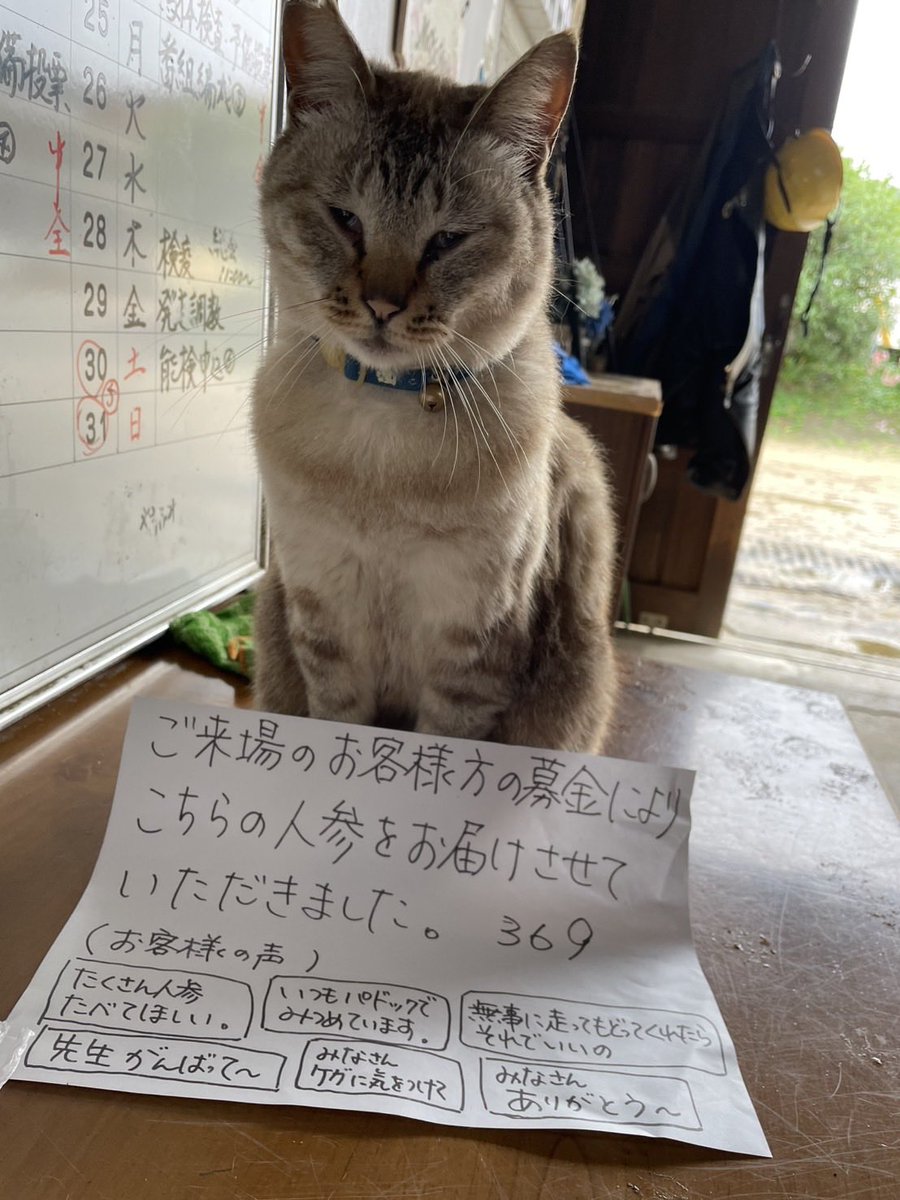 25 月
26 火
27 水
28 木 検疫
29 金 発走調教
30 土 能検申込
31 日
投票
中
全
ご来場のお客様方の募金により
こちらの人参をお届けさせて
いただきました。 369
(お客様の声)
たくさん人参
たべてほしい。
いつもパドックで
みつめています。
無事に走ってもどってくれたら
それでいいの
先生がんばって〜
みなさん
ケガに気をつけて
みなさん
ありがとう〜